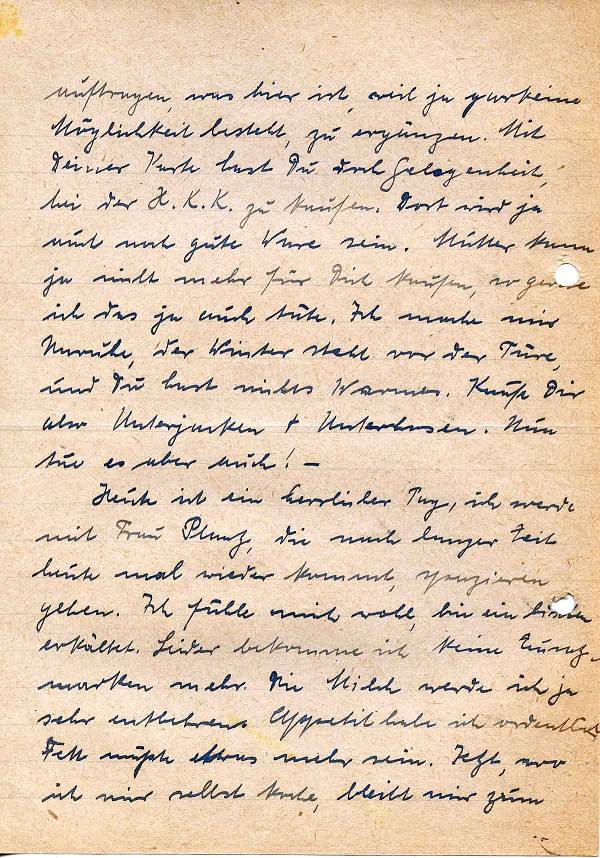 auftragen, was hier ist, weil ja garkeine
Möglichkeit besteht, zu ergänzen. Mit
Deiner Karte hast Du doch Gelegenheit,
bei der H. K. K. zu kaufen. Dort wird ja
auch noch gute Ware sein. Mutter kann
ja nicht mehr für Dich kaufen, so gerne
ich das ja auch täte. Ich mache mir
Unruhe, der Winter steht vor der Türe,
und Du hast nichts Warmes. Kaufe Dir
also Unterjacken + Unterhosen. Nun
tue es aber auch! –
Heute ist ein herrlicher Tag, ich werde
mit Frau die nach langer Zeit
heute mal wieder kommt, spazieren
gehen. Ich fühle mich wohl, bin ein bischen
erkältet. Leider bekomme ich keine Zusatz-
marken mehr. Die Milch werde ich ja
sehr entbehren. Appetit habe ich ordentlich,
Fett müßte etwas mehr sein. Jetzt, wo
ich mir selbst koche, bleibt mir zum